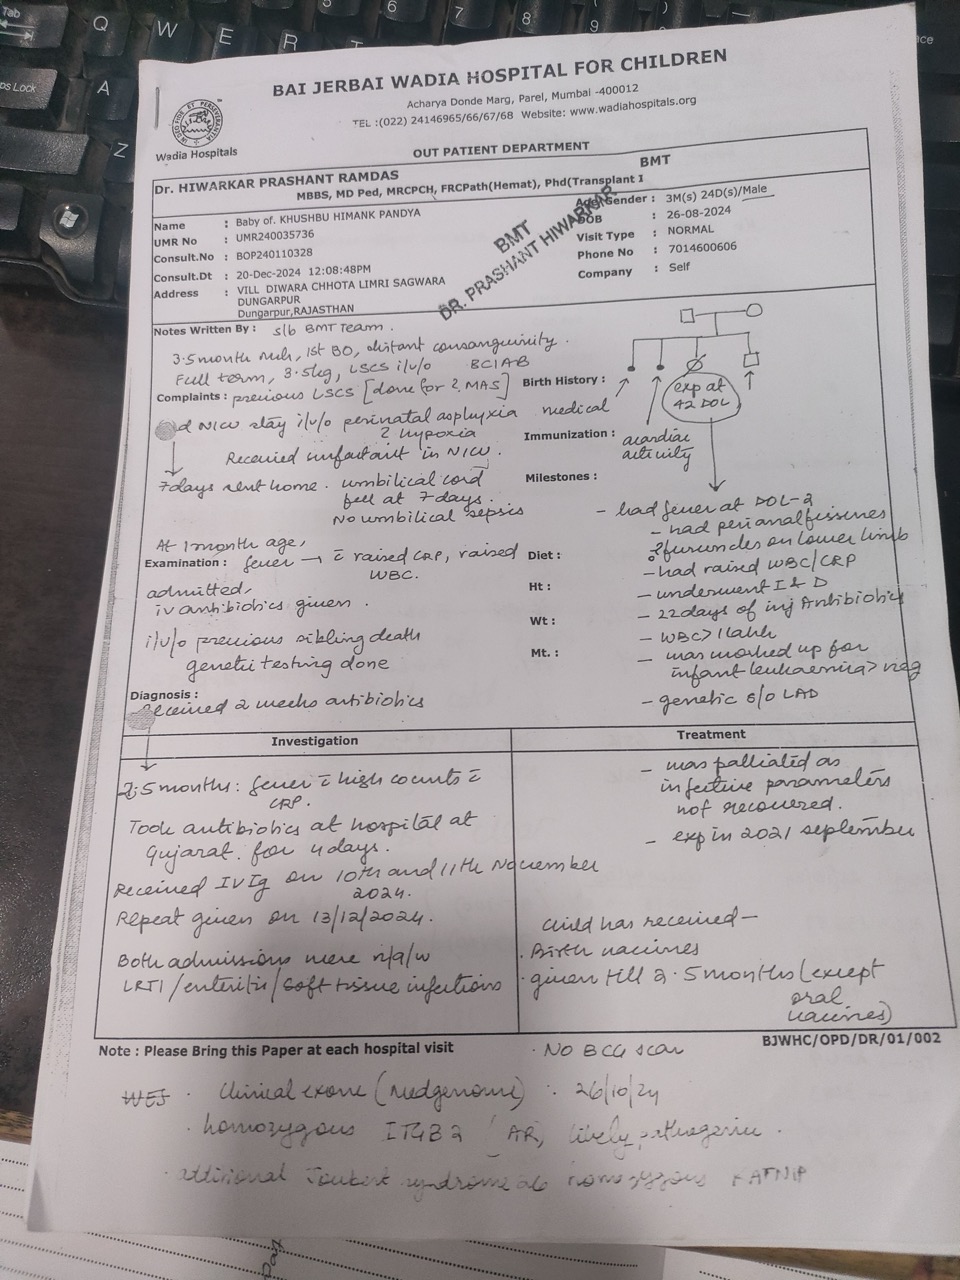 BAI JERBAI WADIA HOSPITAL FOR CHILDREN
Acharya Donde Marg, Parel, Mumbai -400012
TEL :(022) 24146965/66/67/68 Website: www.wadiahospitals.org
Wadia Hospitals
OUT PATIENT DEPARTMENT
BMT
Dr. HIWARKAR PRASHANT RAMDAS
MBBS, MD Ped, MRCPCH, FRCPath(Hemat), Phd(Transplant I
Name : Baby of. KHUSHBU HIMANK PANDYA
UMR No : UMR240035736
Consult.No : BOP240110328
Consult.Dt : 20-Dec-2024 12:08:48PM
Address : VILL DIWARA CHHOTA LIMRI SAGWARA
DUNGARPUR
Dungarpur,RAJASTHAN
Age/Gender : 3M(s) 24D(s)/Male
DOB : 26-08-2024
Visit Type : NORMAL
Phone No : 7014600606
Company : Self
BMT
DR. PRASHANT HIWARKAR
Notes Written By : s/b BMT Team.
3.5month Mch, 1st BO, distant consanguinity.
Full term, 3.5kg, LSCS i/v/o BCIAB
Complaints : previous LSCS [done for ? MAS]
NICU stay i/v/o perinatal asphyxia
hypoxia
Received surfactant in NICU.
7days sent home. umbilical cord
fell at 7 days.
No umbilical sepsis
At 1 month age,
Examination : fever → c̄ raised CRP, raised
WBC.
admitted,
iv antibiotics given.
i/v/o previous sibling death
genetic testing done
Diagnosis :
Received 2 weeks antibiotics
Birth History :
medical
exp at
42 DOL
Immunization :
acardiac
activity
Milestones :
- had fever at DOL-2
- had perianal fissures
? furuncles on lower limb
Diet :
- had raised WBC/CRP
Ht :
- underwent I & D
- 22days of inj Antibiotics
Wt :
- WBC > 1 lakh
Mt. :
- was worked up for
infant leukaemia > neg
- genetic s/o LAD
Investigation
2.5 months: fever c̄ high counts c̄
CRP.
Took antibiotics at hospital at
Gujarat. for 4 days.
Received IVIg on 10th and 11th November
2024.
Repeat given on 13/12/2024.
Both admissions were i/v/o
LRTI/enteritis/soft tissue infections
Treatment
- was palliated as
infective parameters
not recovered.
- exp in 2021 september
Child has received -
. Birth vaccines
. given till 2.5 months (except
oral
vaccines)
Note : Please Bring this Paper at each hospital visit
BJWHC/OPD/DR/01/002
. No BCG scar
WES . Clinical exome (Medgenome) . 26/10/24
. homozygous ITGB2 (AR, likely pathogenic.
. additional Joubert syndrome 26 homozygous KATNIP